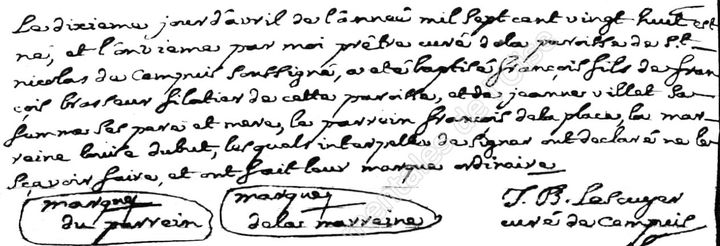 Le dixieme jour d'avril de l'anneé mil sept cent vingt huit est
né, et l'onzieme par moi prêtre curé de la paroisse de St.
nicolas de Campuis soussigné, a eté baptisé françois fils de fran
çois brasseur filatier de cette paroisse, et de jeanne villet sa
femme ses pere et mere, le parrein françois de la place, la mar
reine louise dubut, lesquels interpellés de signer ont declaré ne le
sçavoir faire, et ont fait leur marque ordinaire
marque du parrein
marque de la marreine
J. B. Lescuyer
curé de Campuis